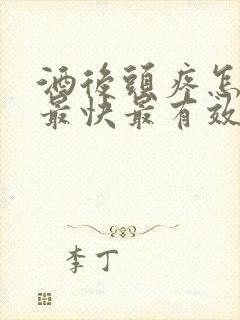 酒後頭疼怎
最快最有效
李丁